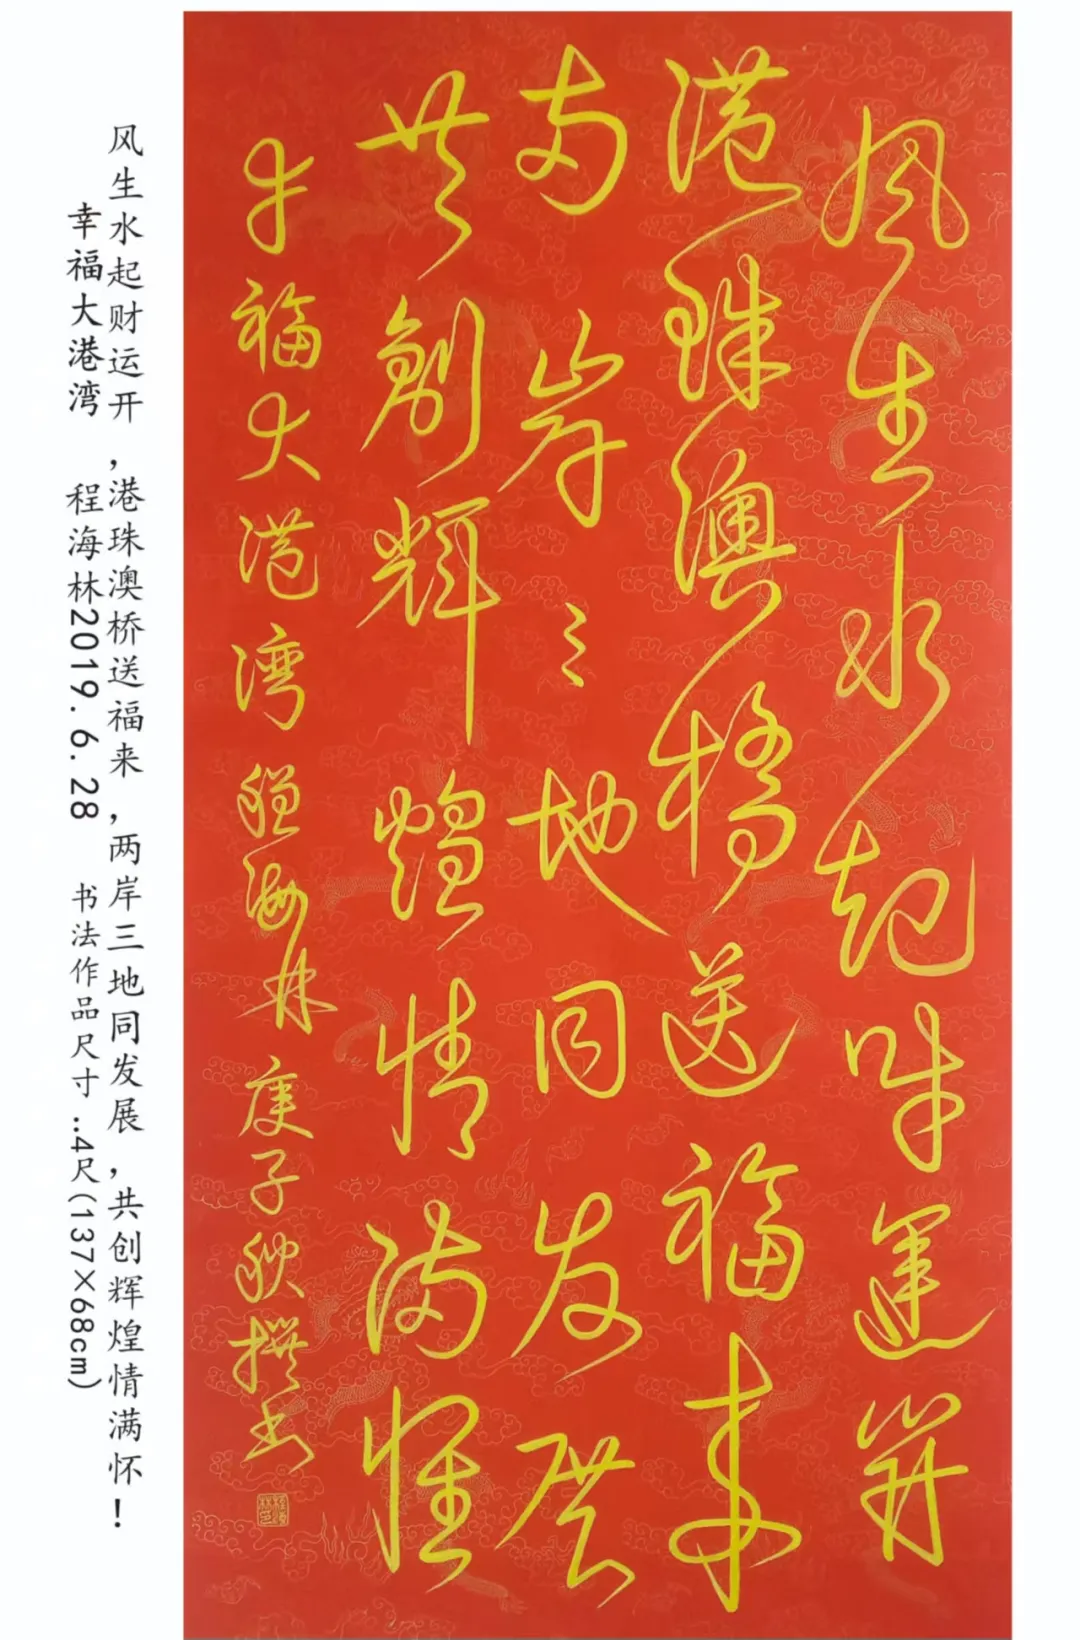 风生水起财運開
港珠澳橋送福来
两岸三地同发展
共創輝煌情满怀
幸福大港湾 程海林 庚子秋撰书
风生水起财运开，港珠澳桥送福来，两岸三地同发展，共创辉煌情满怀！
幸福大港湾 程海林2019.6.28 书法作品尺寸..4尺(137×68cm)